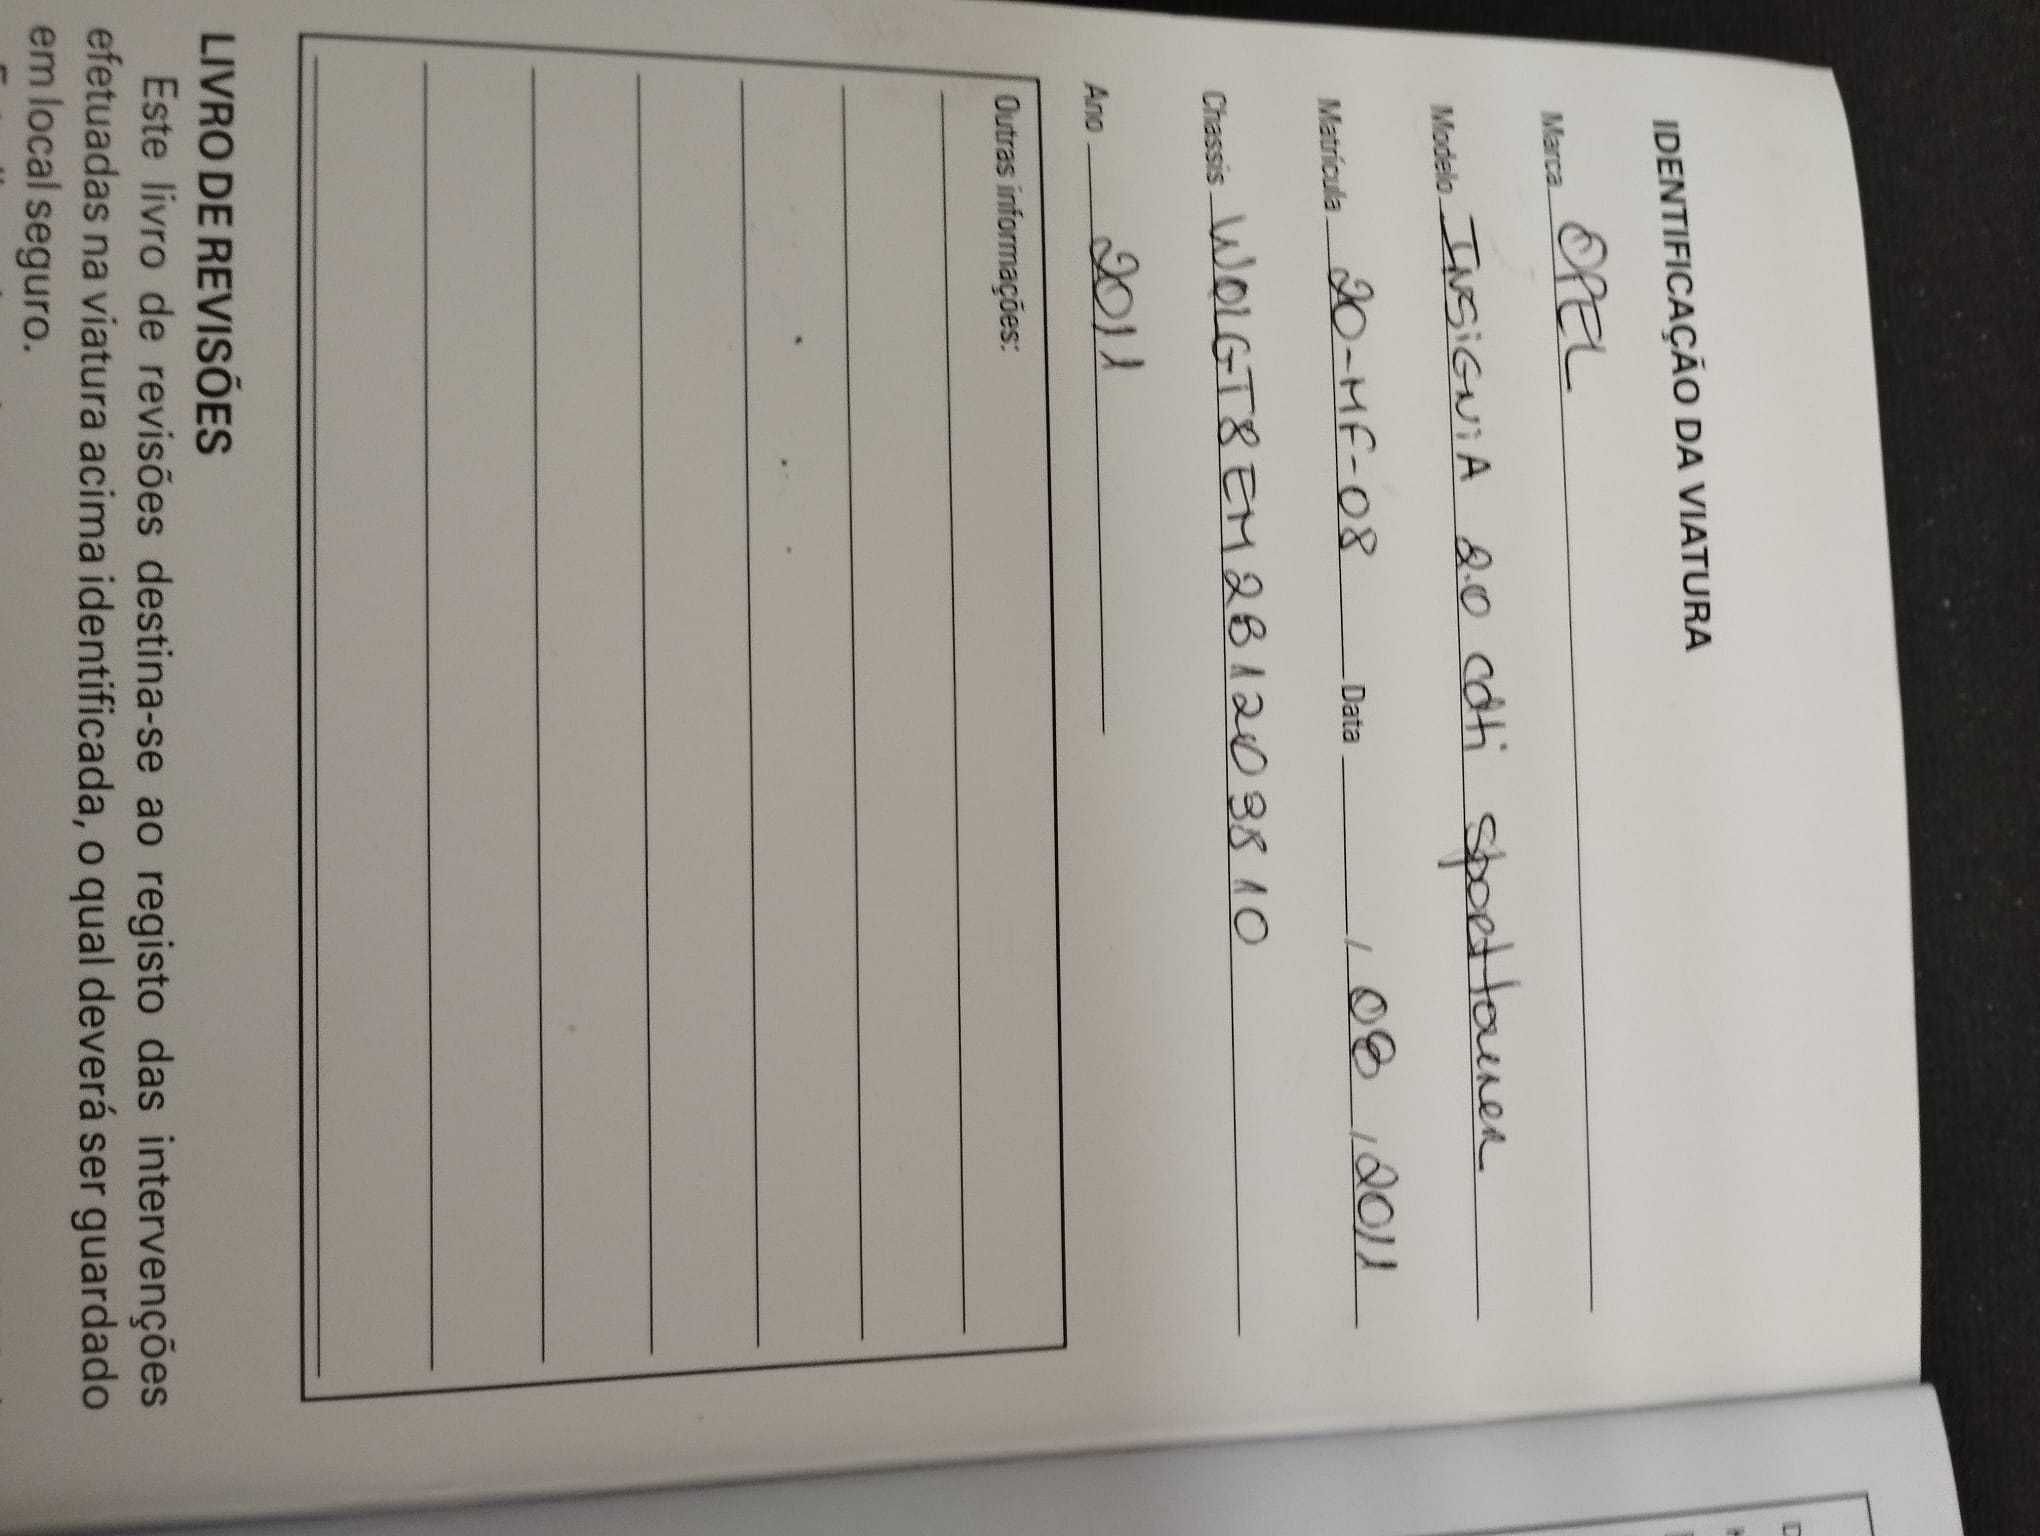 IDENTIFICAÇÃO DA VIATURA
Marca OPEL
Modelo INSIGNIA 2.0 cdti sporttourer
Matrícula 20-MF-08 Data / 08 / 2011
Chassis W0LGT8EM2B1209810
Ano 2011
Outras informações:
LIVRO DE REVISÕES
Este livro de revisões destina-se ao registo das intervenções
efetuadas na viatura acima identificada, o qual deverá ser guardado
em local seguro.